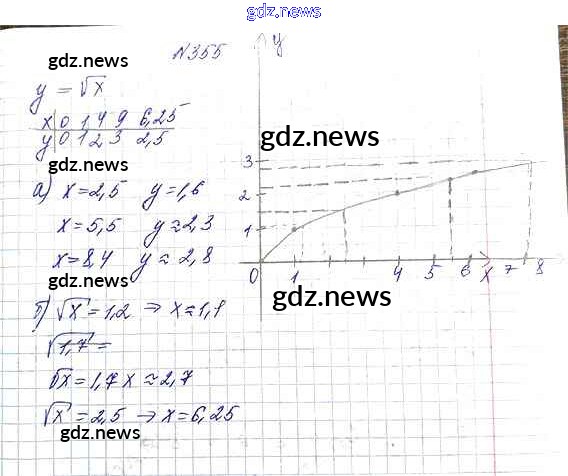 gdz.news
N355
y
gdz.news
y = √x
x 0 1 4 9 6,25
y 0 1 2 3 2,5
gdz.news
gdz.news
а) x=2,5 y=1,6
x=5,5 y≈2,3
x=8,4 y≈2,8
gdz.news
3
2
1
0 1 4 5 6 x 7 8
gdz.news
б) √x=1,2 ⇒ x≈1,1
√1,7 =
gdz.news
√x=1,7 x≈2,7
√x=2,5 → x=6,25
gdz.news